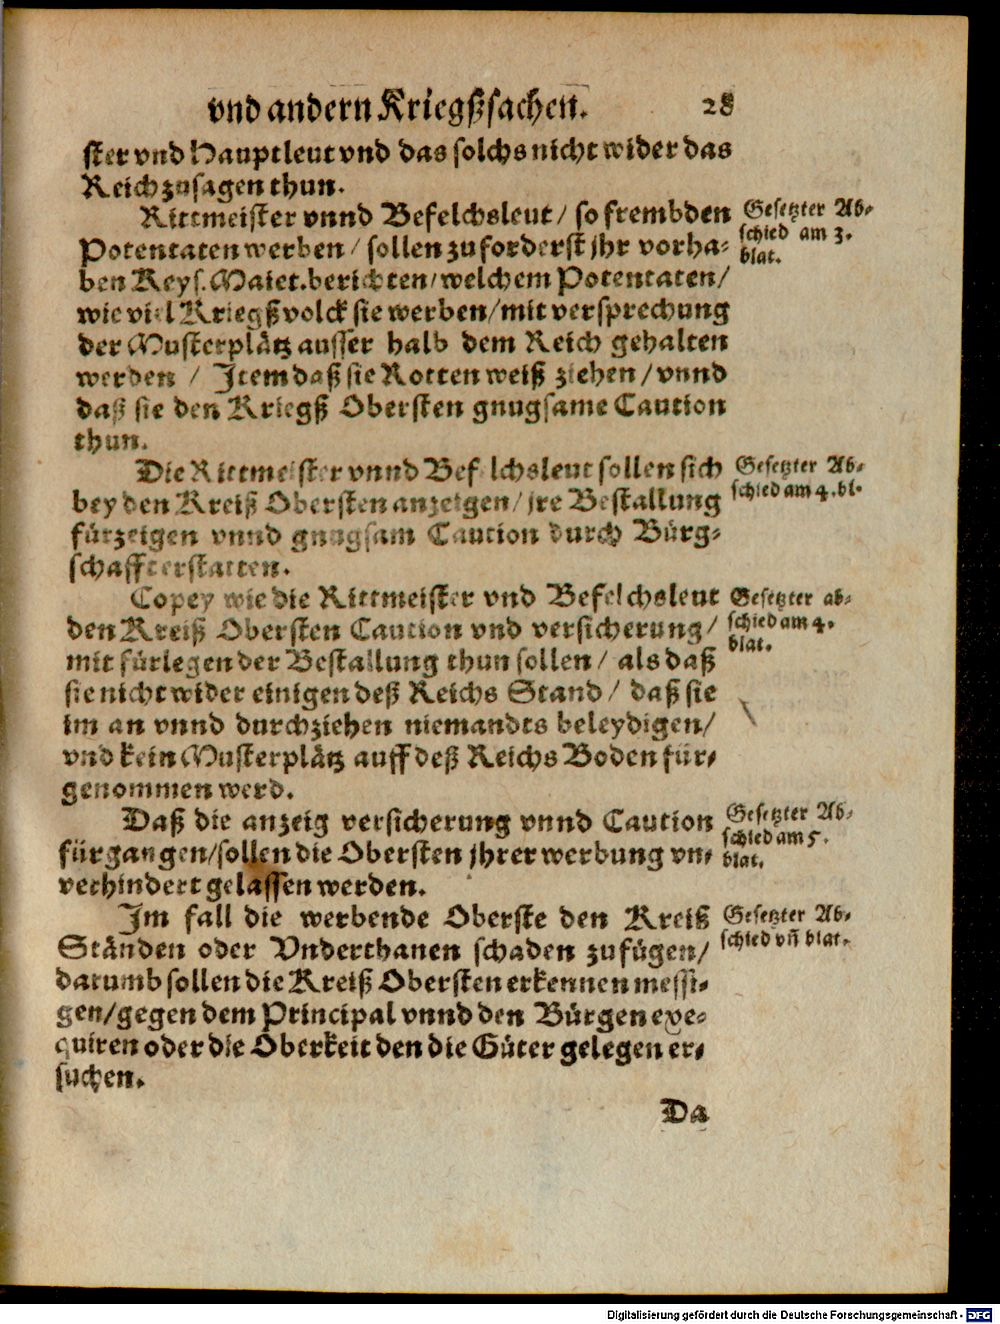 vnd andern Kriegßsachen. 28
ster vnd Hauptleut vnd das solchs nicht wider das
Reich zusagen thun.
Rittmeister vnnd Befelchsleut / so frembden
Gesetzter Ab-
Potentaten werben / sollen zu forderst jhr vorha-
schied am 3.
ben Keys. Maiet. berichten / welchem Potentaten /
blat.
wie viel Kriegßvolck sie werben / mit versprechung
der Musterplätz ausser halb dem Reich gehalten
werden / Item daß sie Rotten weiß ziehen / vnnd
daß sie den Kriegß Obersten gnugsame Caution
thun.
Die Rittmeister vnnd Befelchsleut sollen sich
Gesetzter Ab-
bey den Kreiß Obersten anzeigen / jre Bestallung
schied am 4. bl.
fürzeigen vnnd gnugsam Caution durch Bürg-
schafft erstatten.
Copey wie die Rittmeister vnd Befelchsleut
Gesetzter ab-
den Kreiß Obersten Caution vnd versicherung /
schied am 4.
mit fürlegen der Bestallung thun sollen / als daß
blat.
sie nicht wider einigen deß Reichs Stand / daß sie
im an vnnd durchziehen niemandts beleydigen /
vnd kein Musterplätz auff deß Reichs Boden für-
genommen werd.
Daß die anzeig versicherung vnnd Caution
Gesetzter Ab-
fürgangen / sollen die Obersten jhrer werbung vn-
schied am 5.
verhindert gelassen werden.
blat.
Im fall die werbende Oberste den Kreiß
Gesetzter Ab-
Ständen oder Vnderthanen schaden zufügen /
schied vñ blat.
darumb sollen die Kreiß Obersten erkennen messi-
gen / gegen dem Principal vnnd den Bürgen exe-
quiren oder die Oberkeit den die Güter gelegen er-
suchen.
Da
Digitalisierung gefördert durch die Deutsche Forschungsgemeinschaft - DFG